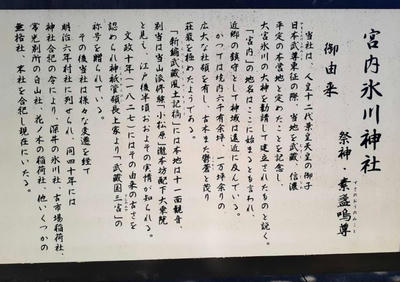 宮内氷川神社
祭神・素盞嗚尊
すさのおのみこと
御由来
当社は、人皇十二代景行天皇の御子
日本武尊東征の際、当地を武蔵、信濃
平定の本営地と定めたことを記念し
大宮氷川の大神を勧請して建立されたものと説く。
「宮内」の地名はここに始まるとも言われ、
近郷の鎮守として神域は遠近に及んでいる。
かつては境内六千有余坪、一万坪余りの
広大な社領を有し、古木また鬱蒼と茂り
荘厳を極めたようである。
「新編武蔵風土記稿」には本地は十一面観音
別当は当山派修験「小松原」瀧本坊配下大乗院
と見え、江戸後半頃おおよその実情が知られる。
文政十年(一八二七)にはその由来の古さを
認められ神祇管領長上家より「武蔵国三宮」の
称号を贈られている。
その後当社は様々な変遷を経て
明治六年村社に列せられ、同四十年には
神社合祀の令により、深井の氷川社、古市場稲荷社、
常光別所の白山社、花ノ木の稲荷社、他いくつかの
無格社、末社を合祀し現在にいたる。